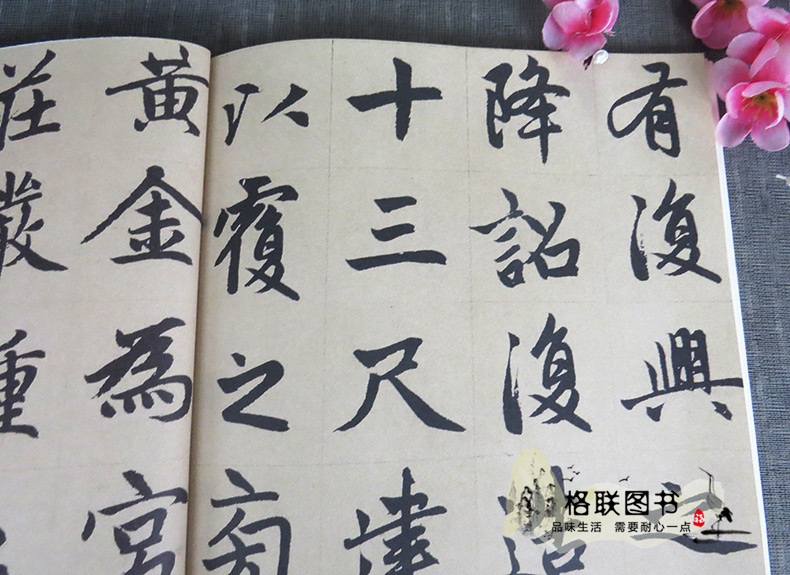 有復興之
降詔復造
十三尺建
以覆之旁
黃金為宮
莊嚴
格联图书
品味生活 需要耐心一点